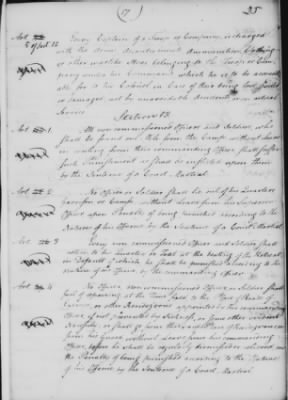 (17) 25
Art 5 of Sect. 12 Every Captain of a Troop or Company, is charged
with the Arms, Accoutrements, Ammunition, Clothing
or other warlike Stores belonging to the Troop or Com-
pany under his Command which he is to be account-
able for to his Colonel in Case of their being lost, spoiled
or damaged, not by unavoidable Accidents or on actual
Service
Section 13
Art 1. All non commissioned Officers and Soldiers, who
shall be found one Mile from the Camp without Leave
in writing from their commanding Officer shall suffer
such Punishment as shall be inflicted upon them
by the Sentence of a Court Martial
Art 2 No Officer or Soldier shall lie out of his Quarters
Garrison or Camp without Leave from his Superior
Officer upon Penalty of being punished according to the
Nature of his Offence by the Sentence of a Court Martial
Art 3 Every non commissioned Officer and Soldier shall
retire to his Quarters or Tent at the beating of the Retreat
in Default of which he shall be punished according to the
nature of his Offence, by the commanding Officer
Art 4 No Officer, non commissioned Officer or Soldier shall
fail of repairing at the Time fixed to the Place of Parade of
Exercise, or other Rendezvous appointed by his commanding
Officer if not prevented by Sickness, or some other evident
Necessity; or shall go from the said place of Rendezvous or
from his Guard without Leave from his commanding
Officer before he shall be regularly dismissed or relieved on
the Penalty of being punished according to the Nature
of his Offence by the Sentence of a Court Martial